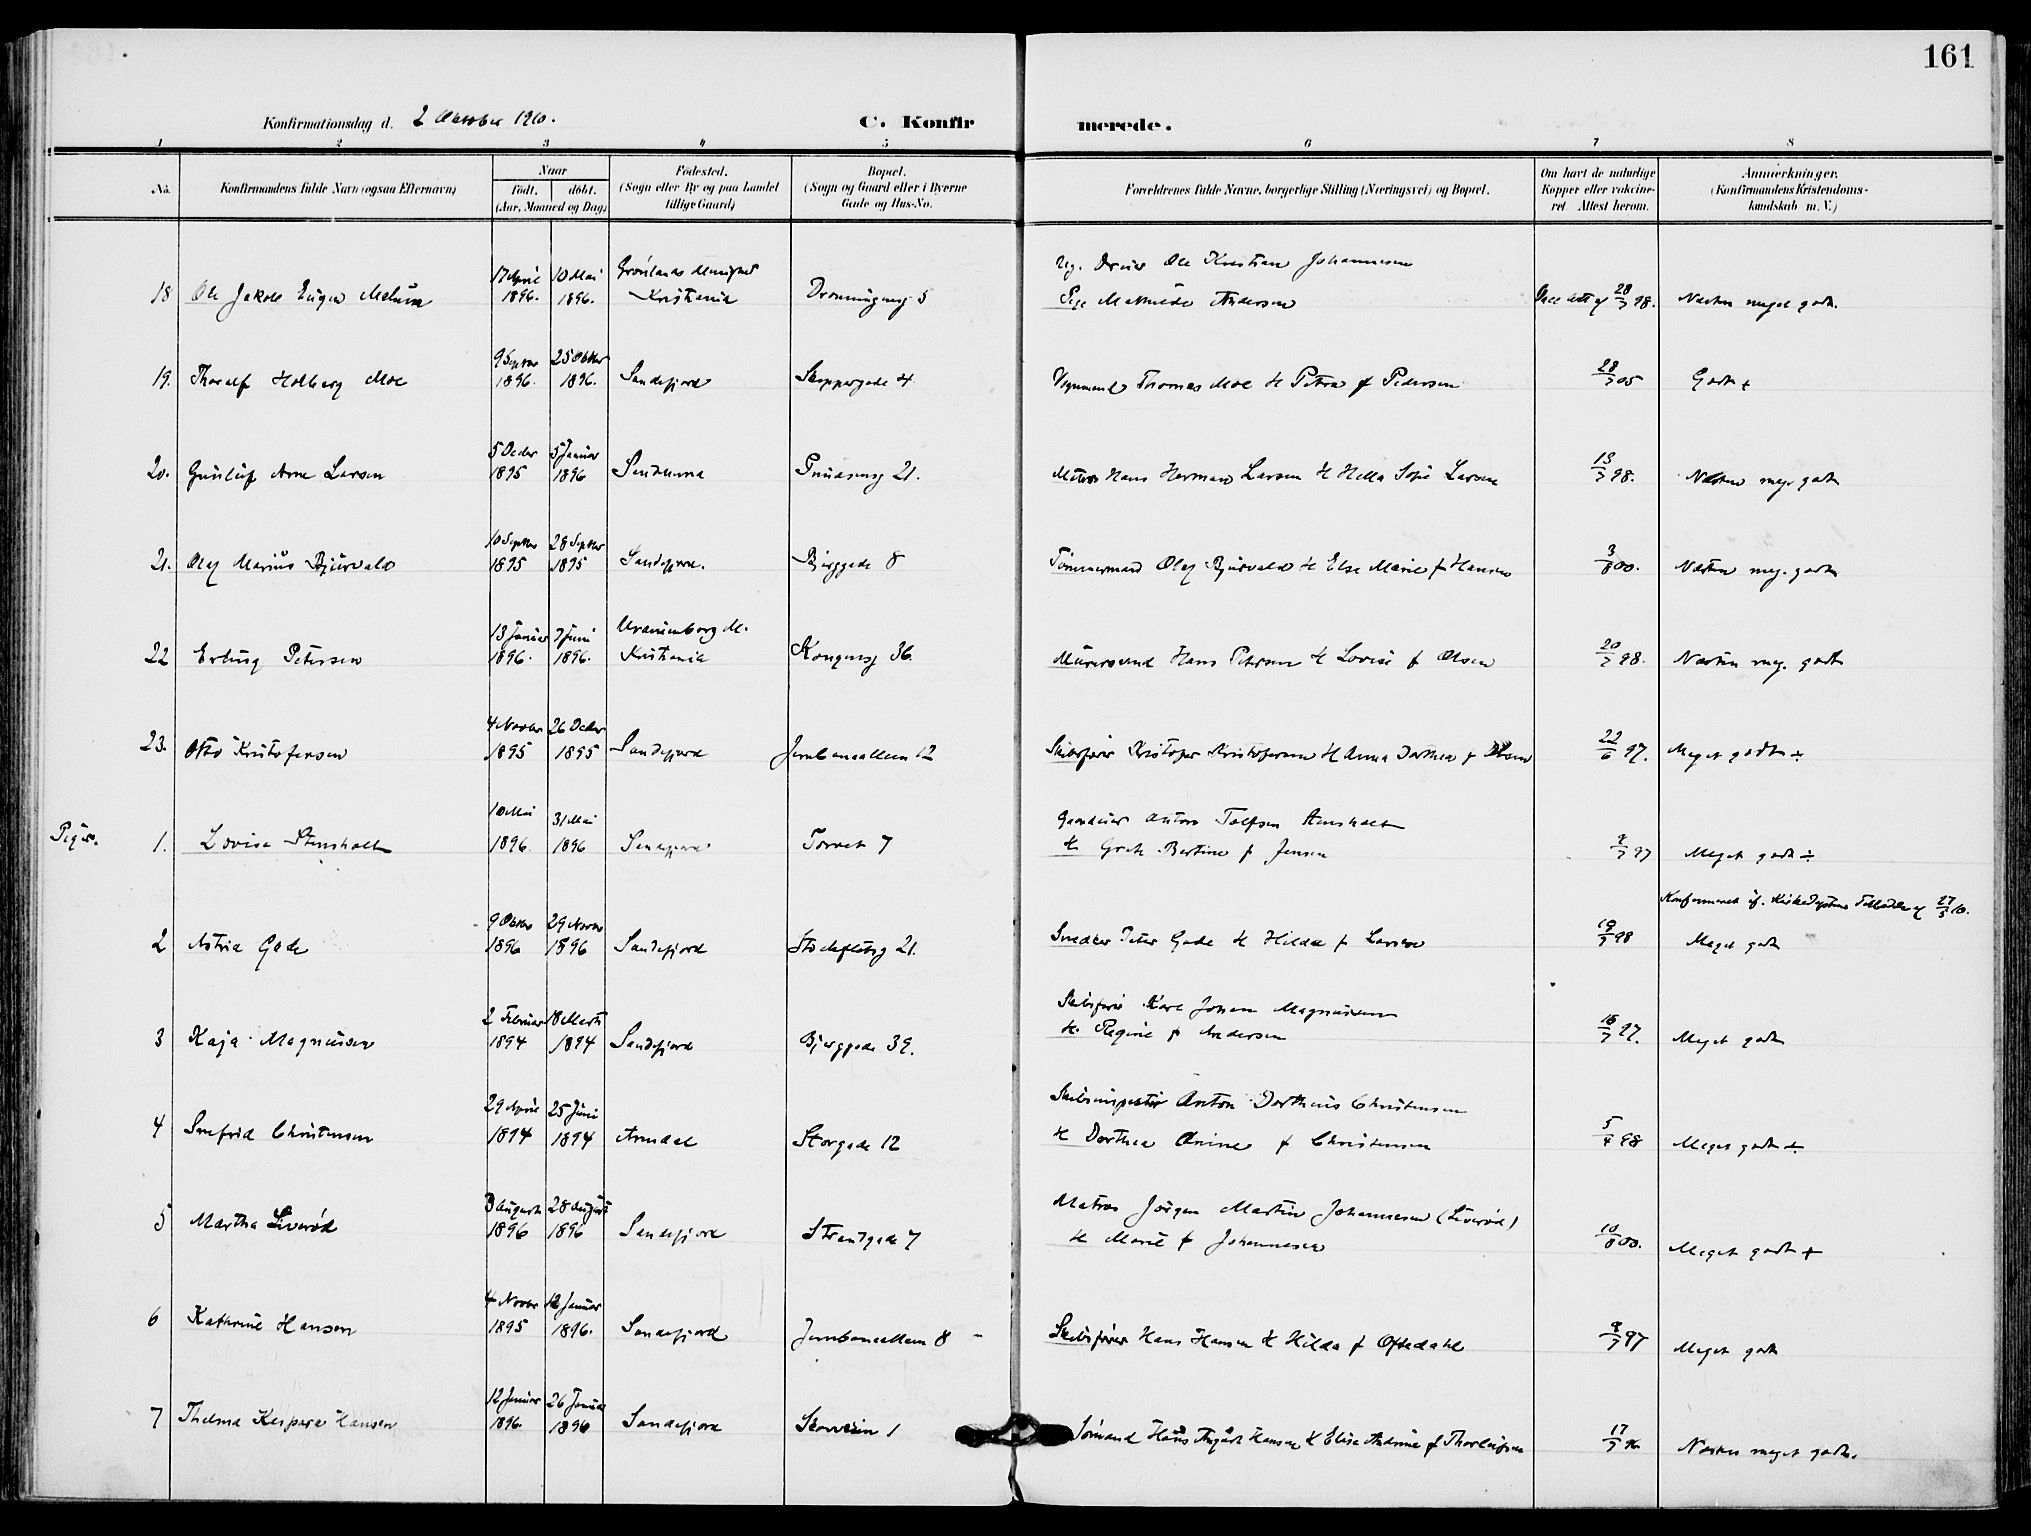 161
Konfirmationsdag d. 2 Oktober 1910.
C. Konfir
merede.
1 2 3 4 5 6 7 8
No. Konfirmandens fulde Navn (ogsaa Efternavn)
Naar
født. døbt.
(Aar, Maaned og Dag)
Fødested.
(Sogn eller By og paa Landet
tillige Gaard)
Bopæl.
(Sogn og Gaard eller i Byerne
Gade og Hus-No.
Forældrenes fulde Navne, borgerlige Stilling (Næringsvei) og Bopæl.
Om havt de naturlige
Kopper eller vakcine-
ret Attest herom.
Anmerkninger.
(Konfirmandens Kristendoms-
kundskab m. V.)
Ug. Ole Kristian Johannesen
17 April 10 Mai Grønlands Menighed
18 Ole Jakob Melum 1896. 1896. Kristiania Dronningensg 5 Pige Mathilde Andersen 28/7 98. Næsten meget godt.
9 Septbr 25 Oktbr
19. Thoralf Holberg Moe 1896. 1896. Sandefjord Skippergade 4 Thomas Moe & Petra f Pedersen 28/7 05 Godt +
5 Decbr 5 Januar
20. Gunleif Arne Larsen 1895 1896 21. Matros Hans Herman Larsen & Hella Sofie Larsen 13/7 98. Næsten meg. godt
10 Septbr 28 Septbr
21. Olaf Marius Bjurvald 1895 1895 Sandefjord. Bjerggade 8 Tømmermand Olaf Bjurvald & Else Marie f Hansen 3/8 00. Næsten meg. godt
13 Januar 7 Juni Uranienborg M.
22 Erling Petersen 1896. 1896. Kristiania Kongensg 36. Murersvend Hans Petersen & Lovise f Olsen 20/7 98. Næsten meg. godt
4 Novbr 26 Decbr
23. Otto Kristofersen 1895 1895 Sandefjord Jernbanealleen 12 Skibsfører Kristofer Kristofersen & Anna Dorthea f Olsen 22/6 97. Meget godt ÷
Piger.
10 Mai 31 Mai Gaardeier Anton Tolfsen Stensholt
1. Lovise Stensholt 1896. 1896 Sandefjord Torvet 7 & Grete Bertine f Jensen 9/7 97 Meget godt ÷
Konfirmeret if. Kirkedept. Tilladelse af 27/5 10.
9 Oktbr 29 Novbr
2 Astrid Gade 1896 1896 Sandefjord 21. Snedker Peter Gade & Hilda f Larsen 19/7 98 Meget godt
2 Februar 18 Marts Skibsfører Karl Johan Magnussen
3 Kaja Magnussen 1894 1894 Sandefjord Bjerggade 39. & Regine f Andersen 16/7 97. Meget godt
29 April 25 Juni Skibsinspektør Anton Dortheus Christensen
4 Snefrid Christensen 1894 1894 Arendal Storgade 12 & Dorthea Anine f Christensen 5/4 98 Meget godt ÷
3 August 28 August Matros Jørgen Martin Johannesen (Liverød)
5 Martha Liverød 1896 1896 Sandefjord Strandgade 7 & Marie f Johannesen 10/8 00. Meget godt +
4 Novbr 12 Januar
6 Kathrine Hansen 1895 1896. Sandefjord Jernbanealleen 8 Skibsfører Hans Hansen & Hilda f Oftedahl 9/7 97 Meget godt
12 Januar 26 Januar
7 Thelma Kaspara Hansen 1896. 1896 Sandefjord Skovveien 1 Sømand Hans August Hansen & Elise Andrine f Thorleifsen 17/7 96 Næsten meget godt.